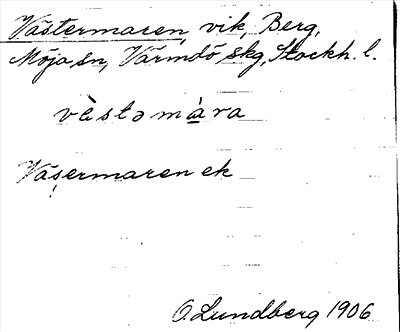 Västermaren, vik, Berg,
Möja sn, Värmdö skg, Stockh. l.
vèstəmàra
Väsermaren ek
O. Lundberg 1906